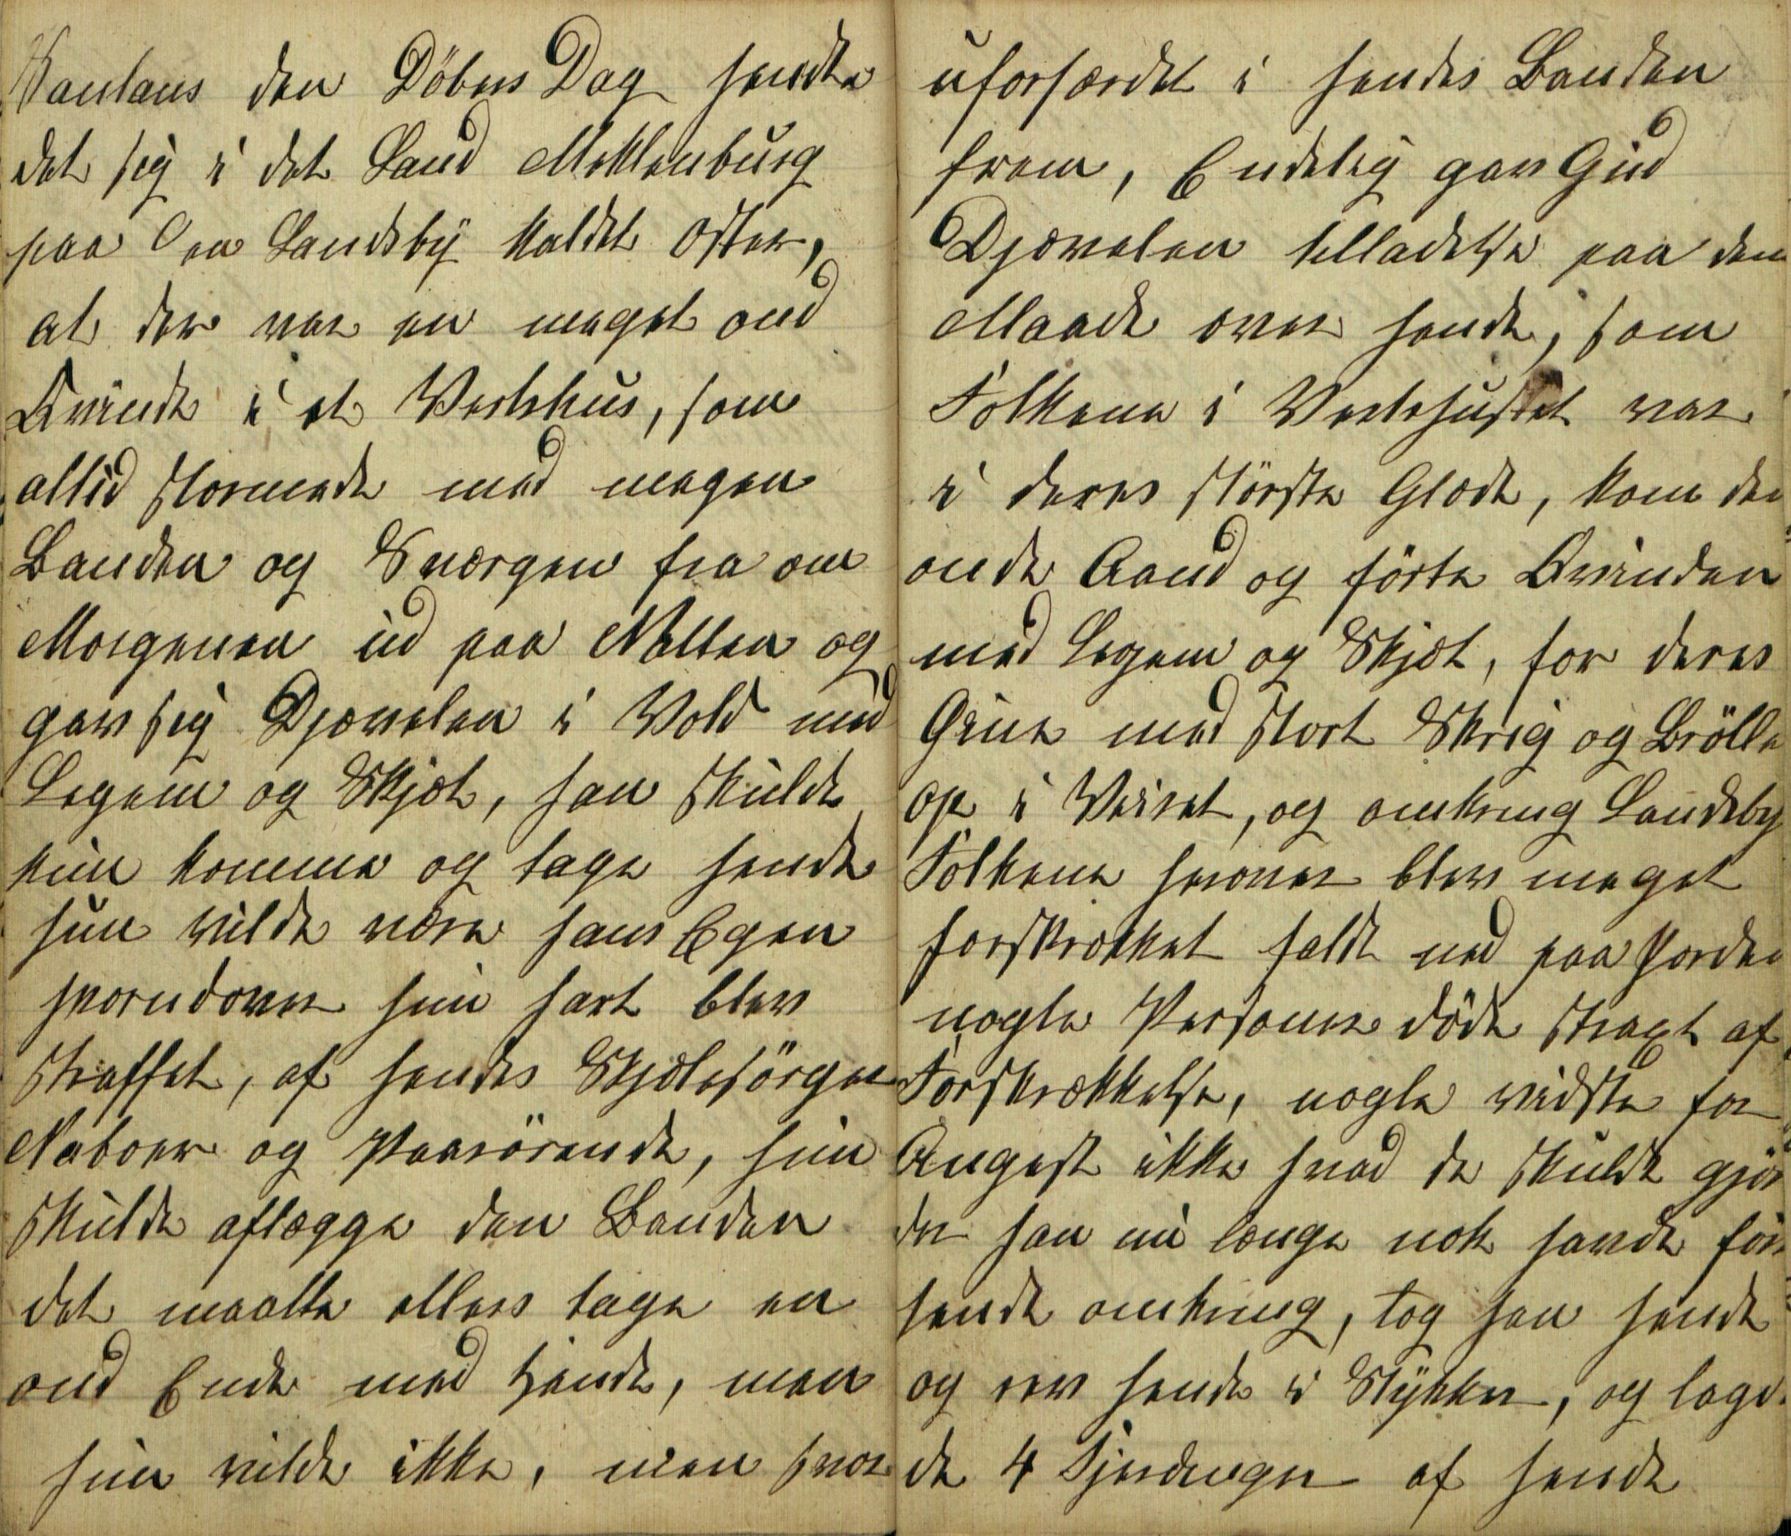 Sanhans den Döbers Dag hendte
det sig i det Land Meklenburg
paa en Landsby kaldet Oster,
at der var en meget ond
Qvinde i et Vertshus, som
altid stormede med megen
Banden og Sværgen fra om
Morgenen ud paa Natten og
gav sig Djævelen i Vold med
Legem og Skjæl, han skulde
kun komme og tage hende
hun vilde være hans Egen
hvorudover hun hart blev
straffet, af hendes Skjælesörger
Naboer og Paarörende, hun
skulde aflægge den Banden
det maatte ellers tage en
ond Ende med hende, men
hun vilde ikke, men foer
uforfærdet i hendes Banden
frem, Endelig gav Gud
Djævelen tilladelse paa den
Maade over hende, som
Folkene i Vertshuset var
i deres störste Glæde, kom den
onde Aand og förte Qvinden
med Legem og Skjæl, for deres
Öine med stort Skrig og Bröllen
op i Veiret, og omkring Landsby
Folkene herover blev meget
forskrækket faldt ned paa Jorden
nogle Personer döde strax af
Forskrækkelse, nogle vidste for
Angest ikke hvad de skulde gjöre
der han nu længe nok havde för
hende omkring, tog han hende
og rev hende i Stykker, og lagde
de 4 Fjerdinger af hende